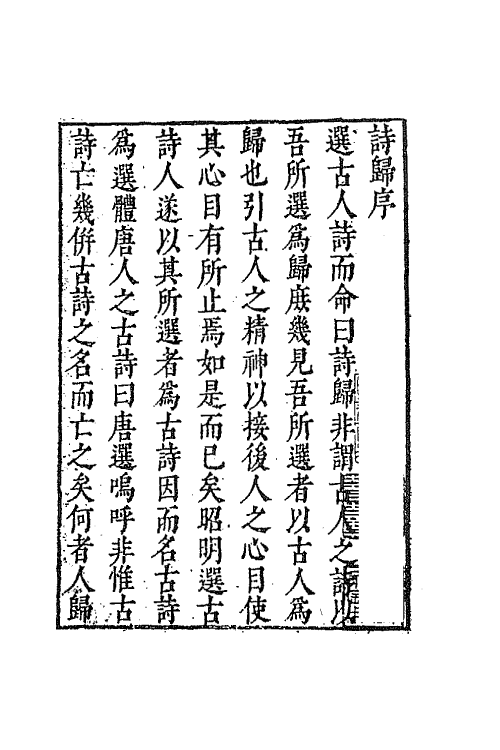 詩歸序
選古人詩而命曰詩歸非謂古人之詩以
吾所選為歸庻幾見吾所選者以古人為
歸也引古人之精神以接後人之心目使
其心目有所止焉如是而已矣昭明選古
詩人遂以其所選者為古詩因而名古詩
為選體唐人之古詩曰唐選嗚呼非惟古
詩亡幾併古詩之名而亡之矣何者人歸